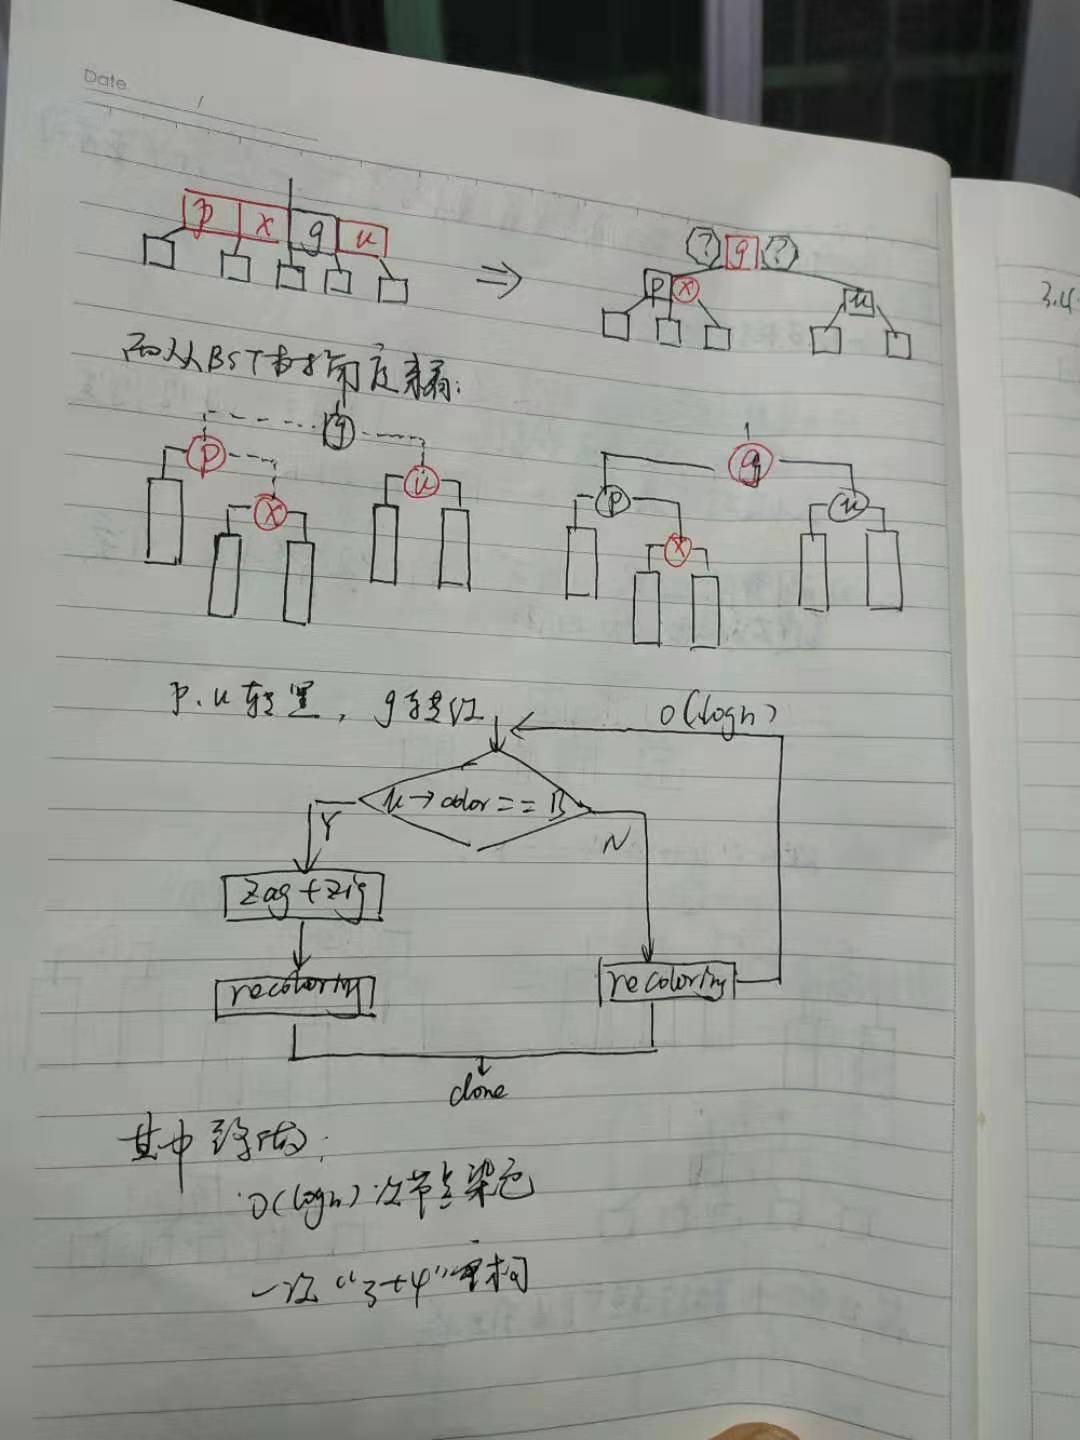 Date
/
p x g u
? g ?
p x u
3.4
而从BST树角度来看:
g
p u
x
g
p u
x
p.u转黑, g转红
O(logn)
u→color==B
Y
N
zag+zig
recoloring
recoloring
done
其中
O(logn)次节点染色
一次“3+4”重构